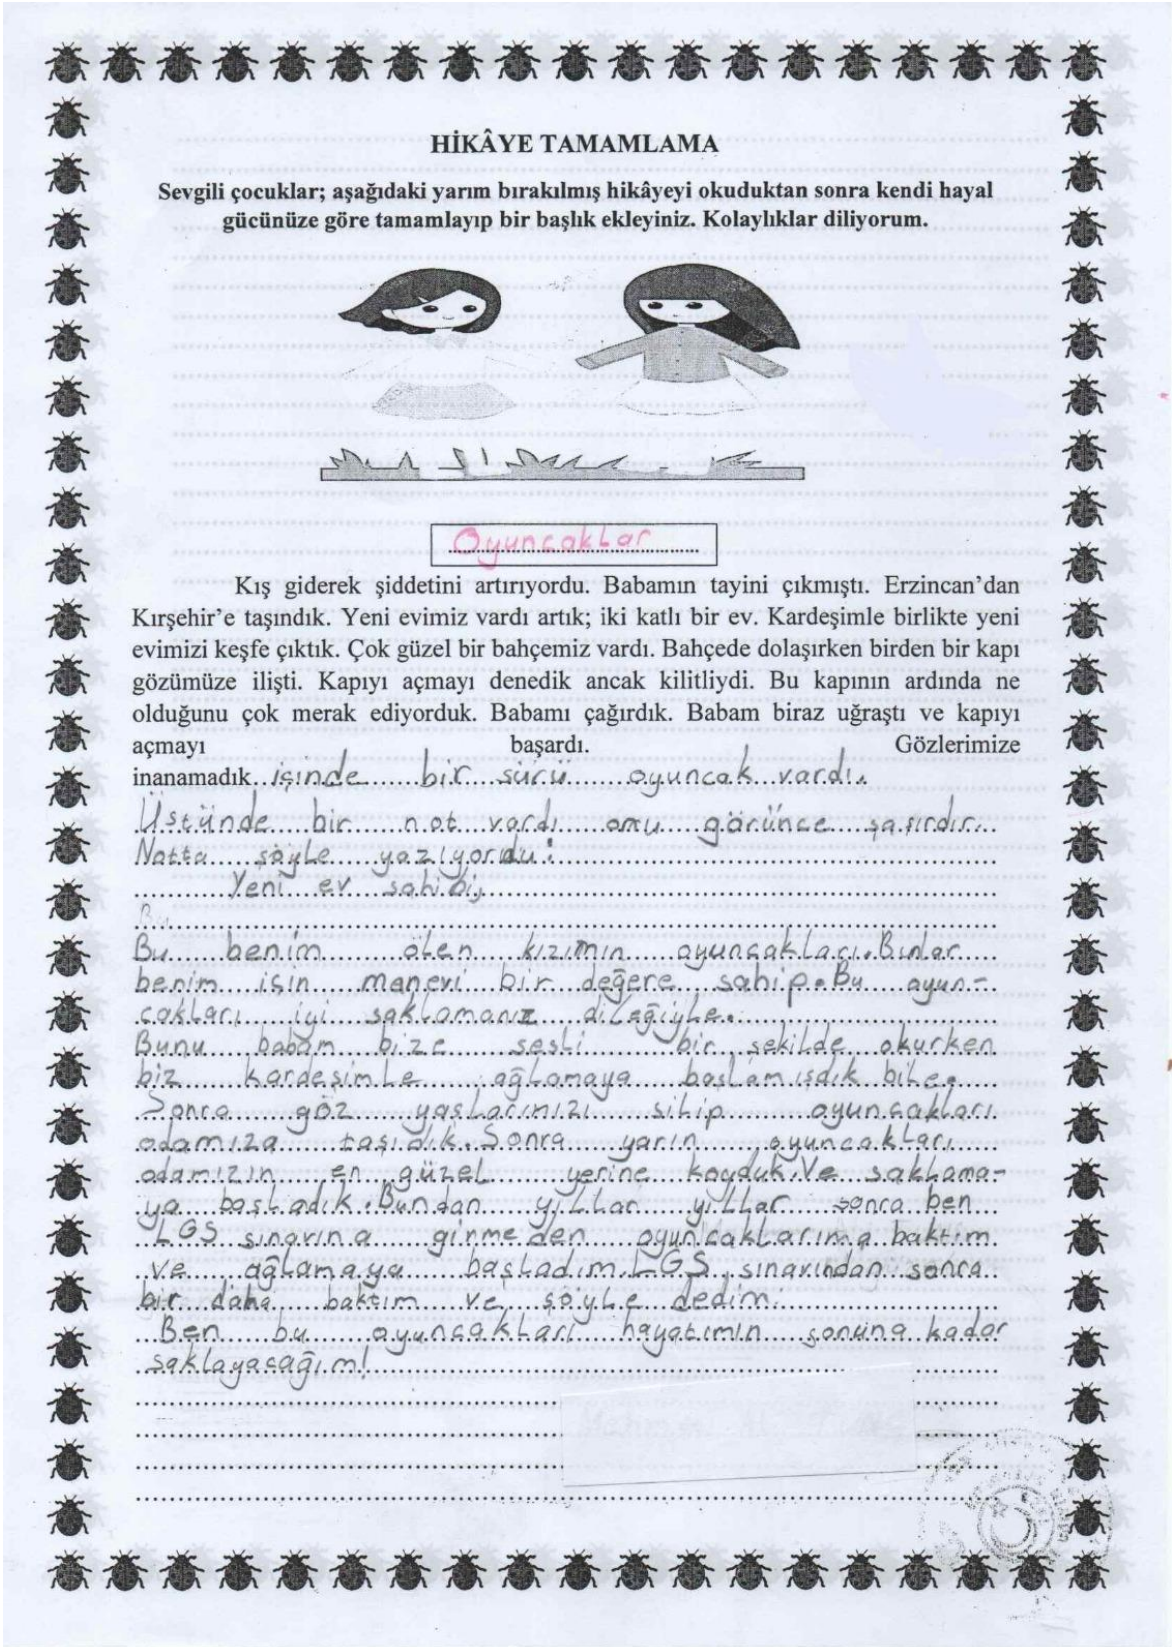 HİKÂYE TAMAMLAMA
Sevgili çocuklar; aşağıdaki yarım bırakılmış hikâyeyi okuduktan sonra kendi hayal
gücünüze göre tamamlayıp bir başlık ekleyiniz. Kolaylıklar diliyorum.
Oyuncaklar
Kış giderek şiddetini artırıyordu. Babamın tayini çıkmıştı. Erzincan’dan
Kırşehir’e taşındık. Yeni evimiz vardı artık; iki katlı bir ev. Kardeşimle birlikte yeni
evimizi keşfe çıktık. Çok güzel bir bahçemiz vardı. Bahçede dolaşırken birden bir kapı
gözümüze ilişti. Kapıyı açmayı denedik ancak kilitliydi. Bu kapının ardında ne
olduğunu çok merak ediyorduk. Babamı çağırdık. Babam biraz uğraştı ve kapıyı
açmayı başardı. Gözlerimize
inanamadık içinde bir sürü oyuncak vardı.
Üstünde bir not vardı onu görünce şaşırdır.
Notta şöyle yazıyordu:
Yeni ev sahibi,
Bu
Bu benim ölen kızımın oyuncakları. Bunlar
benim için manevi bir değere sahip. Bu oyun-
cakları iyi saklamanız dileğiyle.
Bunu babam bize sesli bir şekilde okurken
biz kardeşimle ağlamaya başlamışdık bile.
Sonra göz yaşlarımızı silip oyuncakları
odamıza taşıdık. Sonra yarın oyuncakları
odamızın en güzel yerine koyduk. Ve saklama-
ya başladık. Bundan yıllar yıllar sonra ben
LGS sınavına girmeden oyuncaklarıma baktım
ve ağlamaya başladım. LGS sınavından sonra
bir daha baktım ve şöyle dedim:
Ben bu oyuncakları hayatımın sonuna kadar
saklayacağım!